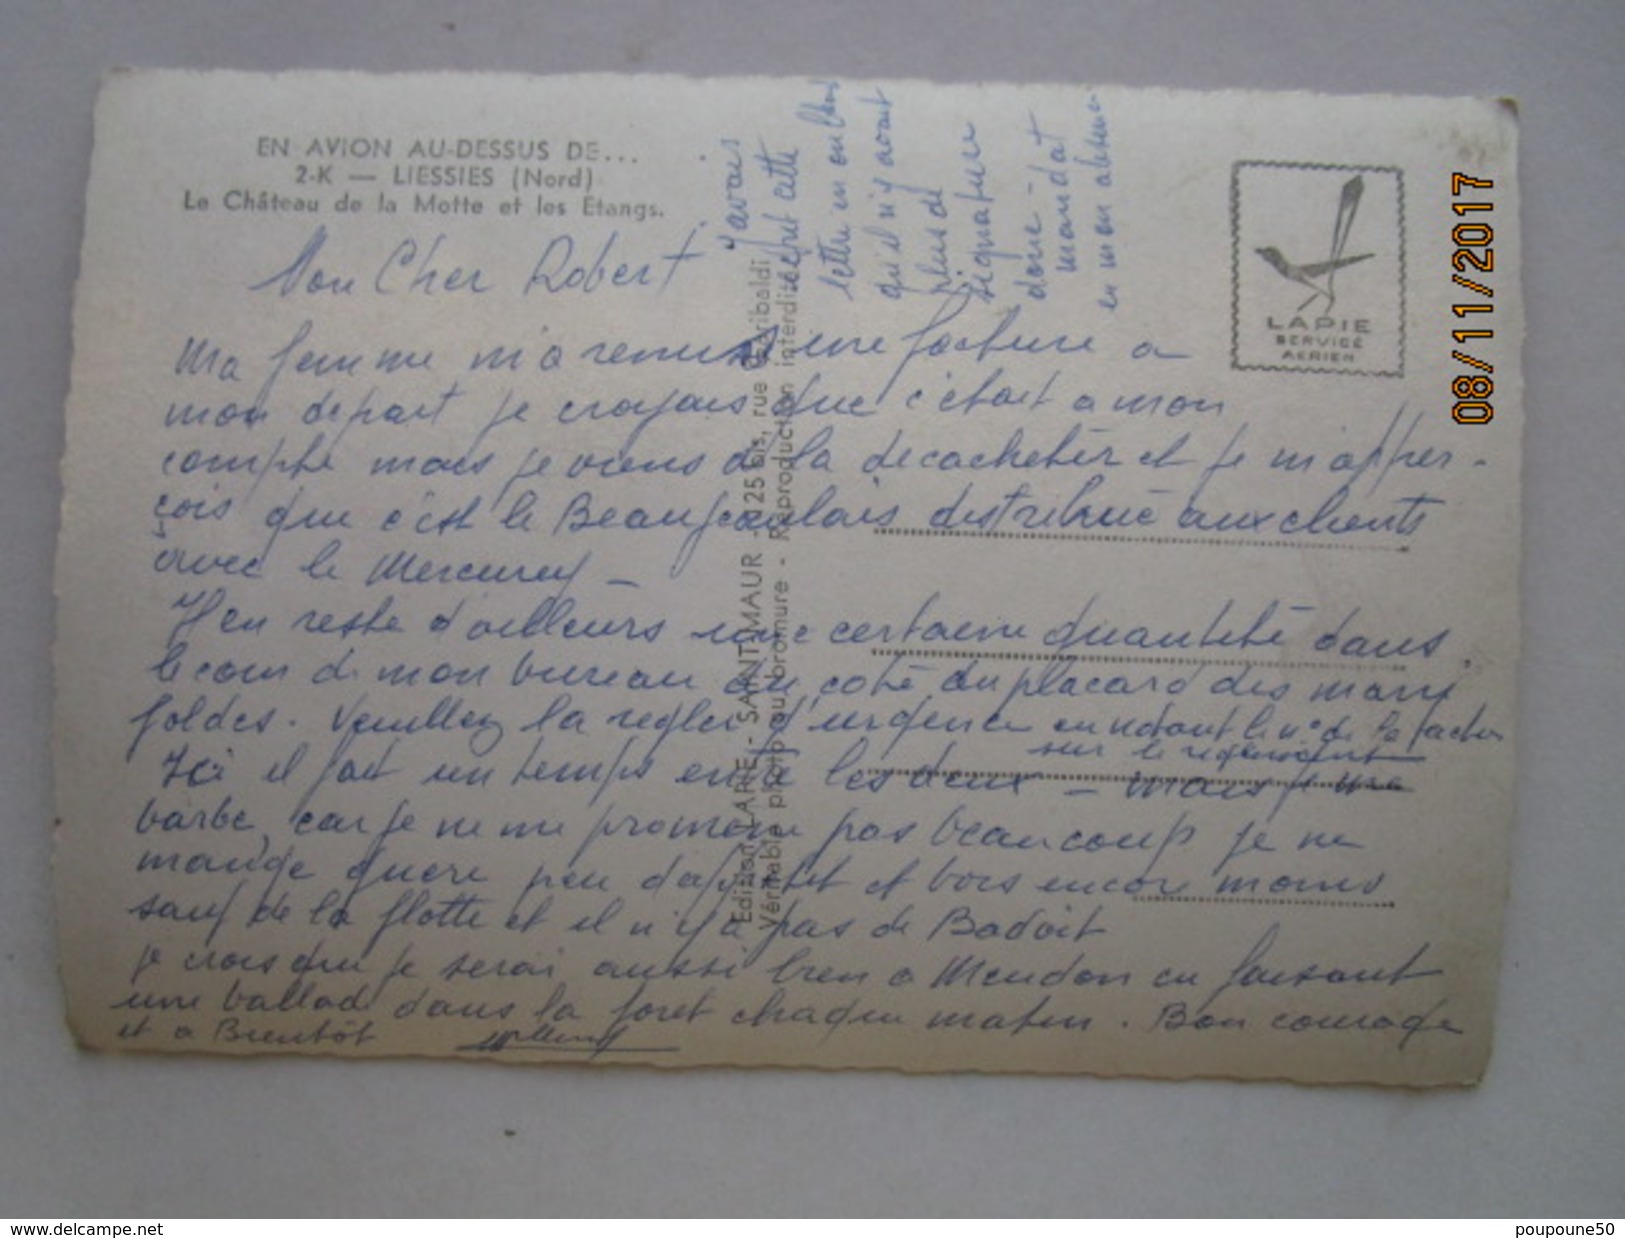 EN AVION AU-DESSUS DE...
2-K — LIESSIES (Nord)
Le Château de la Motte et les Etangs.
Mon Cher Robert
Ma femme m'a remis une facture a
mon depart je croyais que c'etait a mon
compte mais je viens de la decacheter et je m'apper-
çois que c'est le Beaujeaulais distribué aux clients
avec le Mercurey —
Il en reste d'ailleurs une certaine quantité dans
le coin de mon bureau du coté du placard des mani
foldes. Veuillez la regler d'urgence en notant le n° de la facture
sur le reglement
Ici il fait un temps entre les deux — mais je me
barbe car je ne me promene pas beaucoup je ne
mange guere peu d'appetit et bois encore moins
sauf de la flotte et il n'y a pas de Badoit
je crois que je serai aussi bien a Meudon en faisant
une ballade dans la foret chaque matin. Bon courage
et a Bientôt
J'avais
ecrit cette
lettre en oubliant
qu'il n'y avait
plus de
signature
donc
mandat
en mon absence
Edition LAPIE - SAINT-MAUR - 125 bis, rue Garibaldi
Véritable photo au bromure - Reproduction interdite
LAPIE
SERVICE
AERIEN
08/11/2017
www.delcampe.net
poupoune50